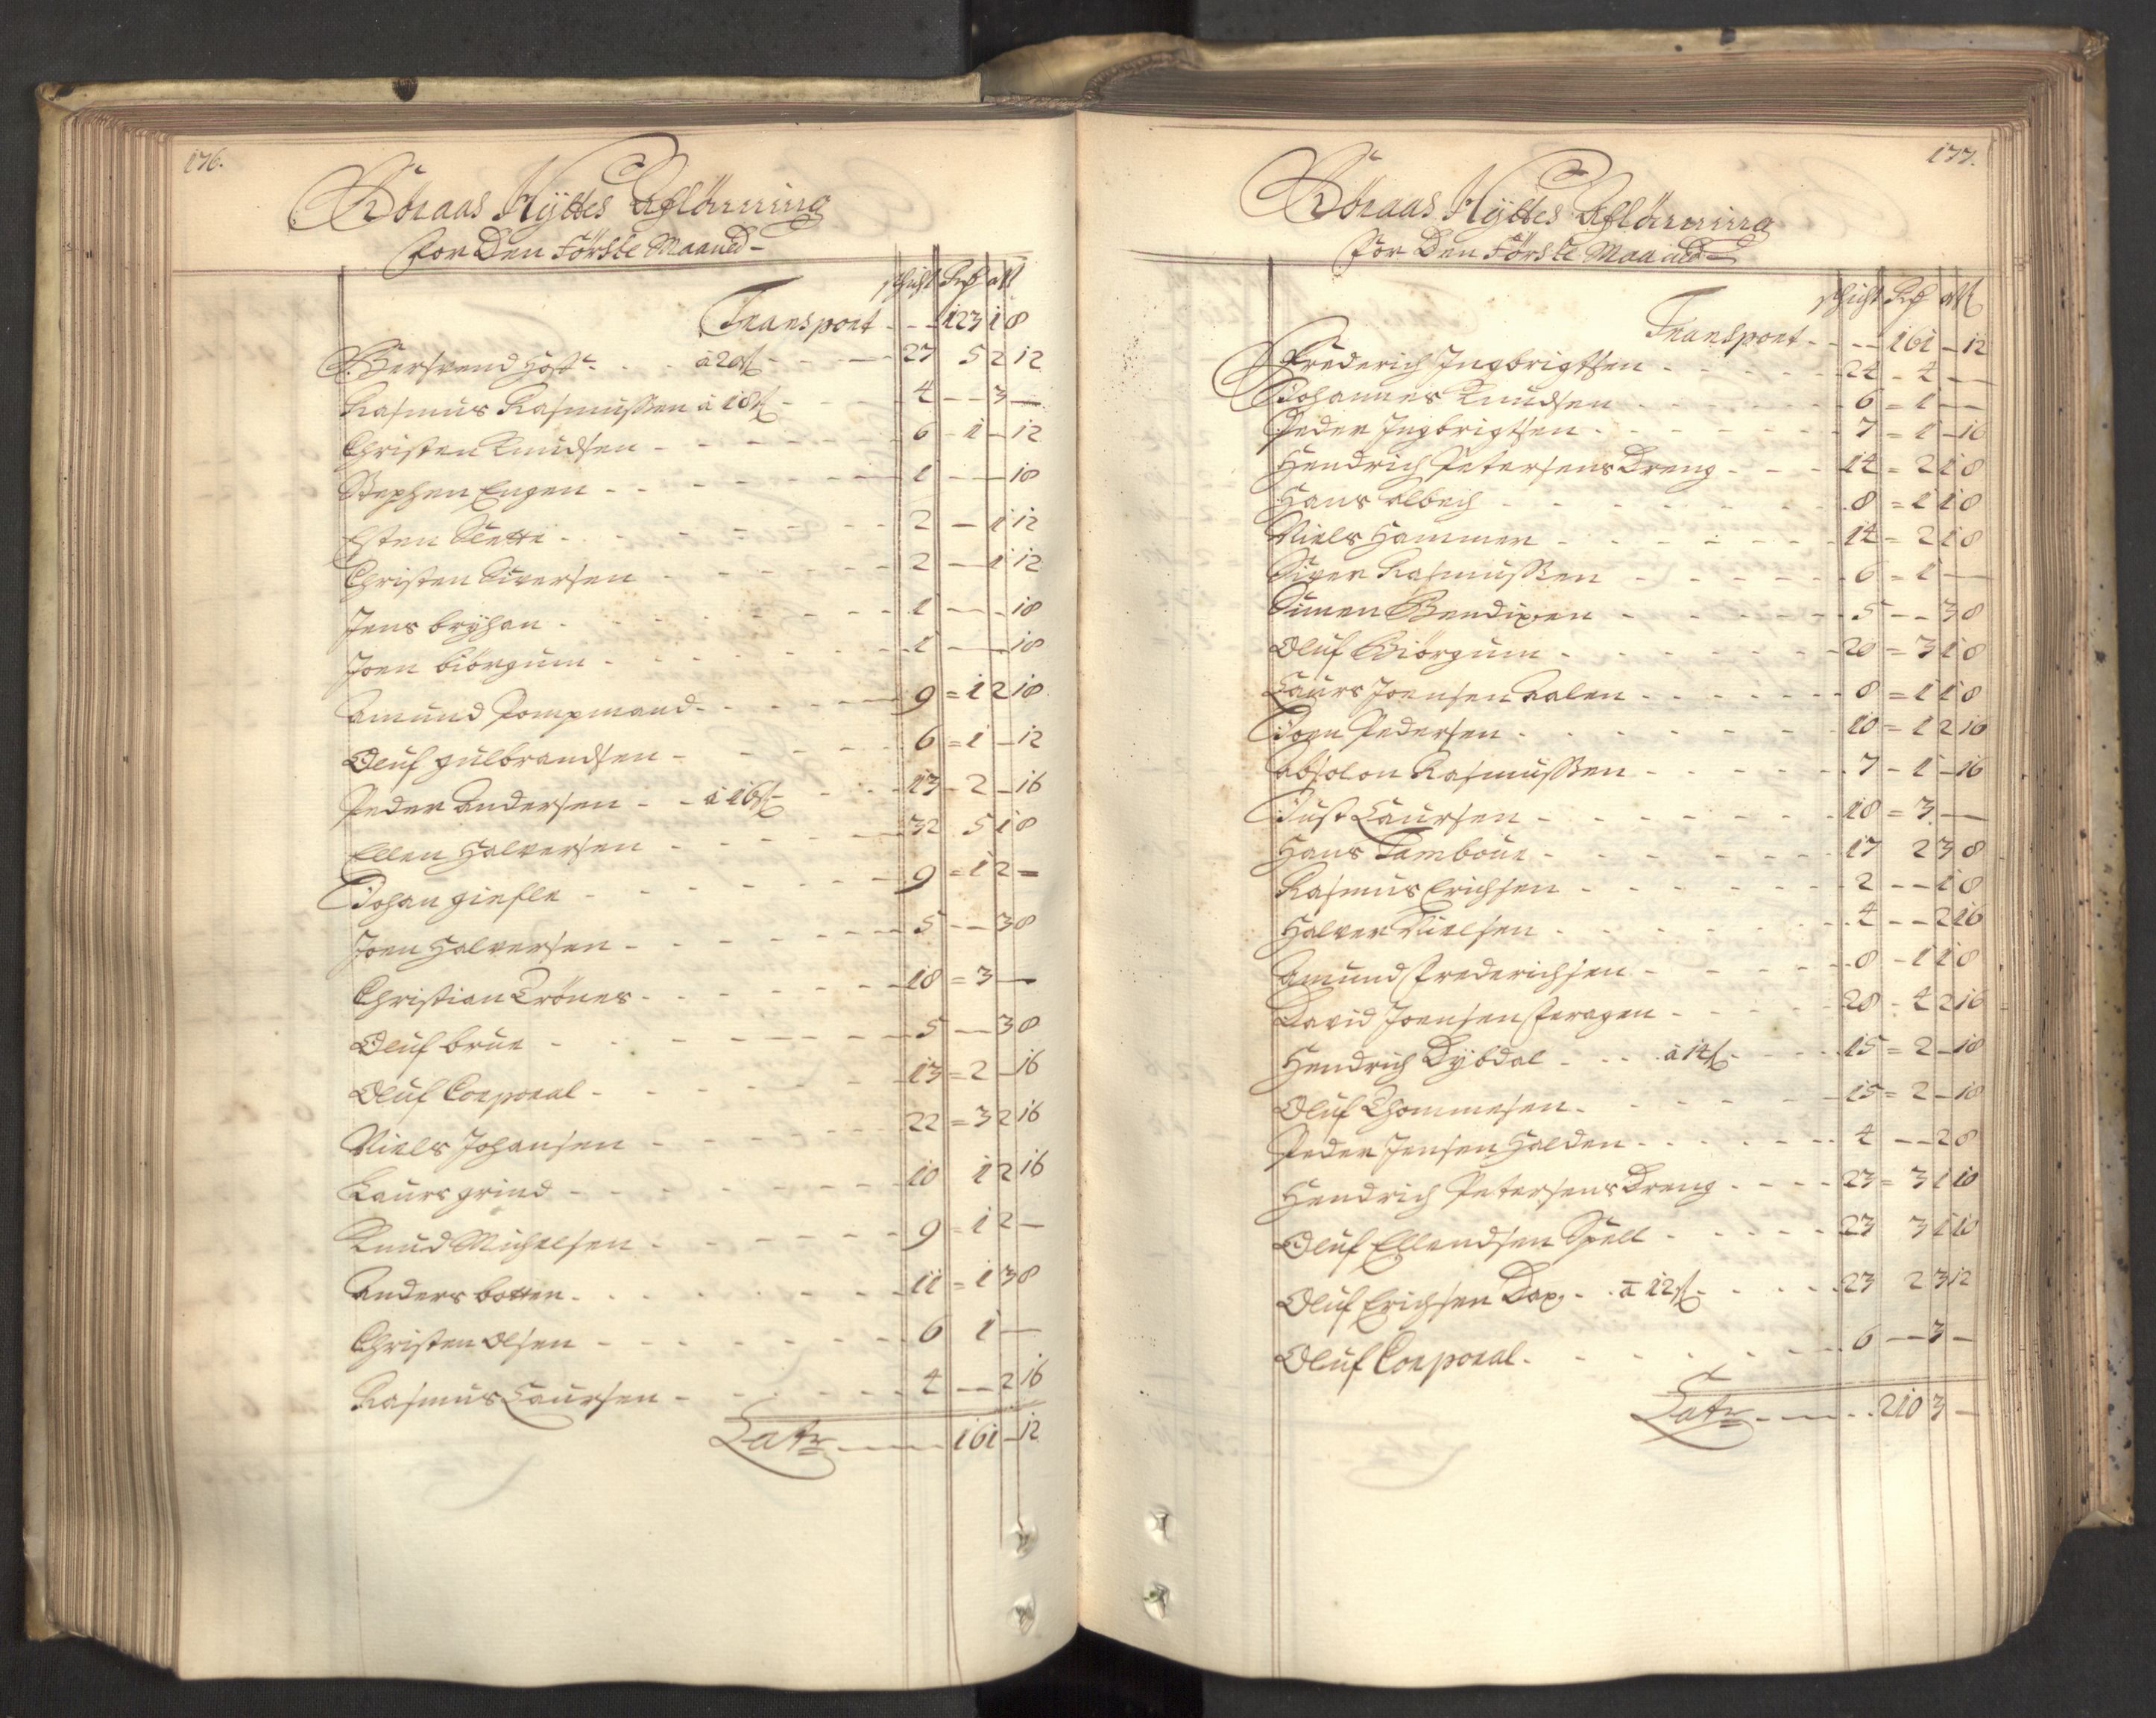 176.
Röraas Hÿttes Aflönning
for Den Förste Maaned
schicht Rd ort ß
Transport - - - 123 1 8
Bertrand Höst - - à 20 ß - - - 27 5 2 12
Rasmus Rasmussen à 18 ß - - - 4 - - 3 -
Christen Knudsen - - - 6 - 1 - 12
Stephen Engen - - - 1 - - 18
Esten Sletti - - - 2 - 1 12
Christen Siversen - - - 2 - 1 12
Jens brÿhan - - - 1 - - 18
Joen biörgum - - - 1 - - 18
Amund Pompmand - - - 9 = 1 2 18
Oluf gulbrandsen - - - 6 = 1 - 12
Peder Andersen - - à 16 ß - - - 13 - 2 - 16
Ellen Halversen - - - 32 5 1 8
Johan giefle - - - 9 = 1 2 -
Joen Halversen - - - 5 - - 3 8
Christian Trönes - - - 18 = 3 -
Oluf brue - - - 5 - - 3 8
Oluf Corporal - - - 13 = 2 - 16
Niels Johansen - - - 22 = 3 2 16
Laurs grind - - - 10 1 2 16
Knud Michelsen - - - 9 = 1 2 -
Anders botten - - - 11 = 1 3 8
Christen Olsen - - - 6 1 -
Rasmus Laursen - - - 4 - - 2 16
Latr - - - 161 - 12
177.
Röraas Hÿttes Aflönning
for Den Förste Maaned
schicht Rd ort ß
Transport - - - 161 - 12
Frederich Ingbrigtsen - - - 24 - 4 - -
Johannes Knudsen - - - 6 = 1 - -
Peder Ingbrigtsen - - - 7 = 1 - 16
Hendrich Petersens Dreng - - - 14 = 2 1 8
Hans Albech - - - 8 = 1 1 8
Niels Hammer - - - 14 = 2 1 8
Siver Rasmussen - - - 6 = 1 -
Simen Bendixen - - - 5 - - 3 8
Oluf Biörgum - - - 20 = 3 1 8
Laurs Joensen Aalen - - - 8 = 1 1 8
Joen Pedersen - - - 10 = 1 2 16
Absolon Rasmussen - - - 7 - 1 - 16
Just Laursen - - - 18 = 3 -
Hans Tambour - - - 17 2 3 8
Rasmus Erichsen - - - 2 - - 1 8
Halver Nielsen - - - 4 - - 2 16
Amund Frederichsen - - - 8 - 1 1 8
David Joensen Feragen - - - 28 - 4 2 16
Hendrich Dÿbdal - - - à 14 ß - - - 15 = 2 - 18
Oluf Thommesen - - - 15 = 2 - 18
Peder Jensen Halden - - - 4 - - 2 8
Hendrich Petersens Dreng - - - 23 = 3 1 10
Oluf Ellendsen Spell - - - 23 3 1 10
Oluf Erichsen Dax - - à 12 ß - - - 23 2 3 12
Oluf Corporal - - - 6 - - 3 -
Latr - - - 210 3 -